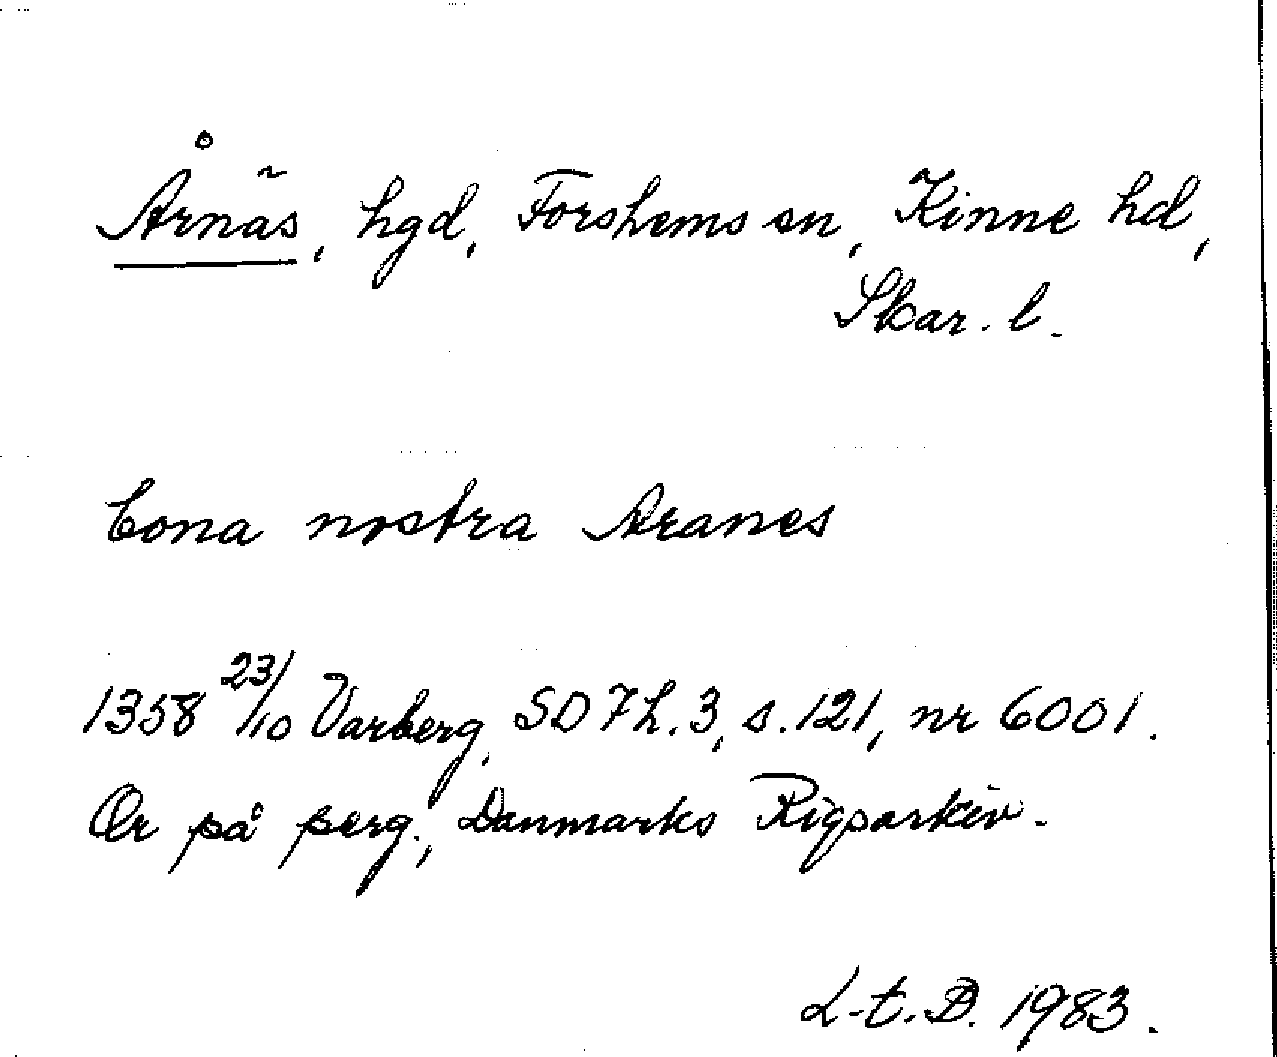 Årnäs, hgd, Forshems sn, Kinne hd,
Skar. l.
bona nostra Aranes
1358 23/10 Varberg, SD 7 h. 3, s. 121, nr 6001.
Or på perg., Danmarks Rigsarkiv.
L-t. B. 1983.